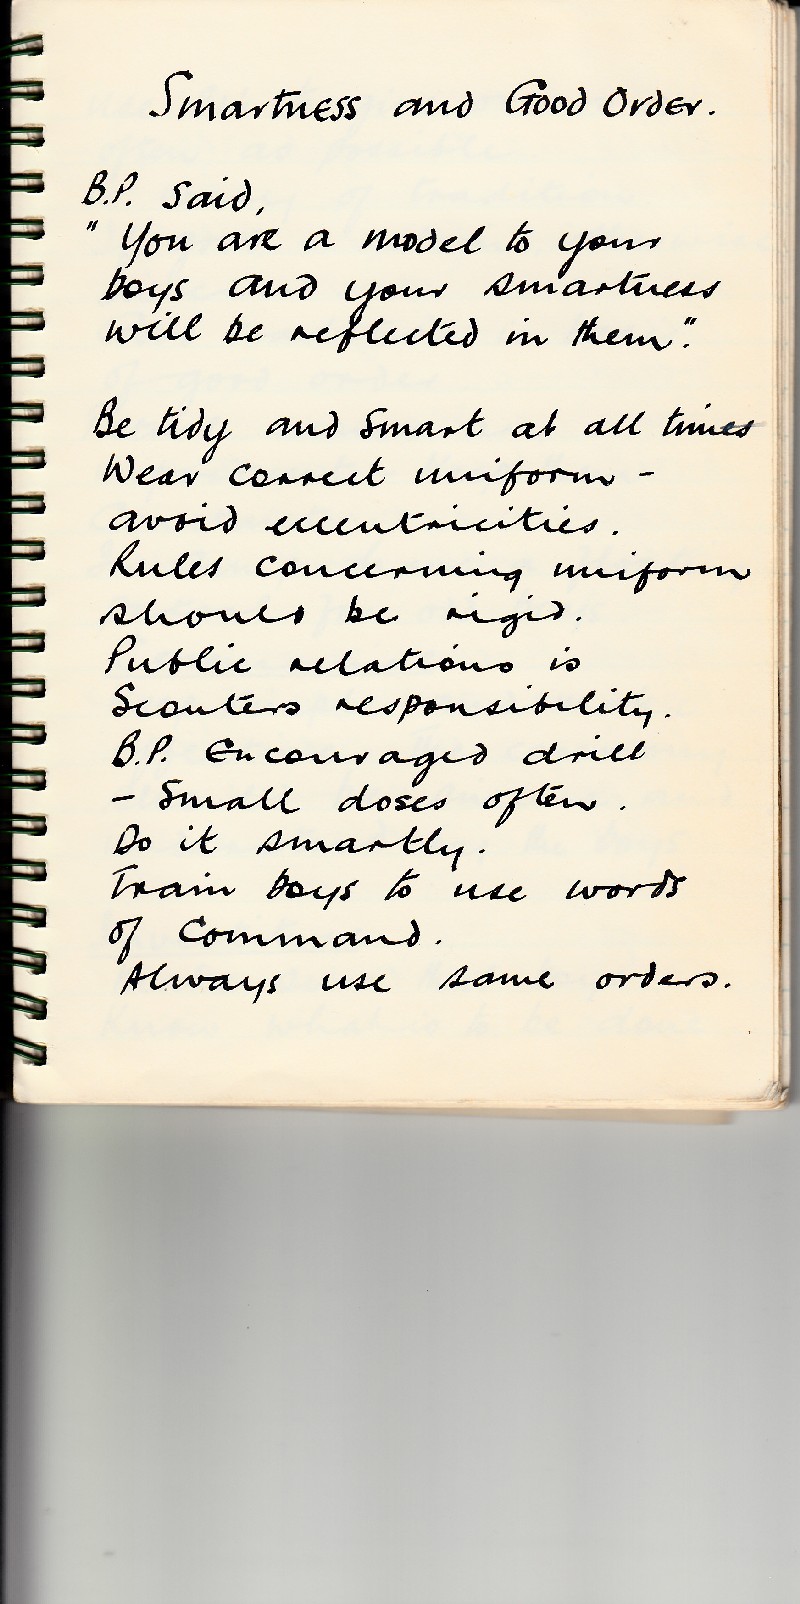 Smartness and Good Order.
B.P. Said,
" You are a model to your
boys and your smartness
will be reflected in them".
Be tidy and smart at all times
Wear correct uniform -
avoid eccentricities.
Rules concerning uniform
should be rigid.
Public relations is
Scouters responsibility.
B.P. Encouraged drill
- Small doses often.
Do it smartly.
Train boys to use words
of Command.
Always use same orders.